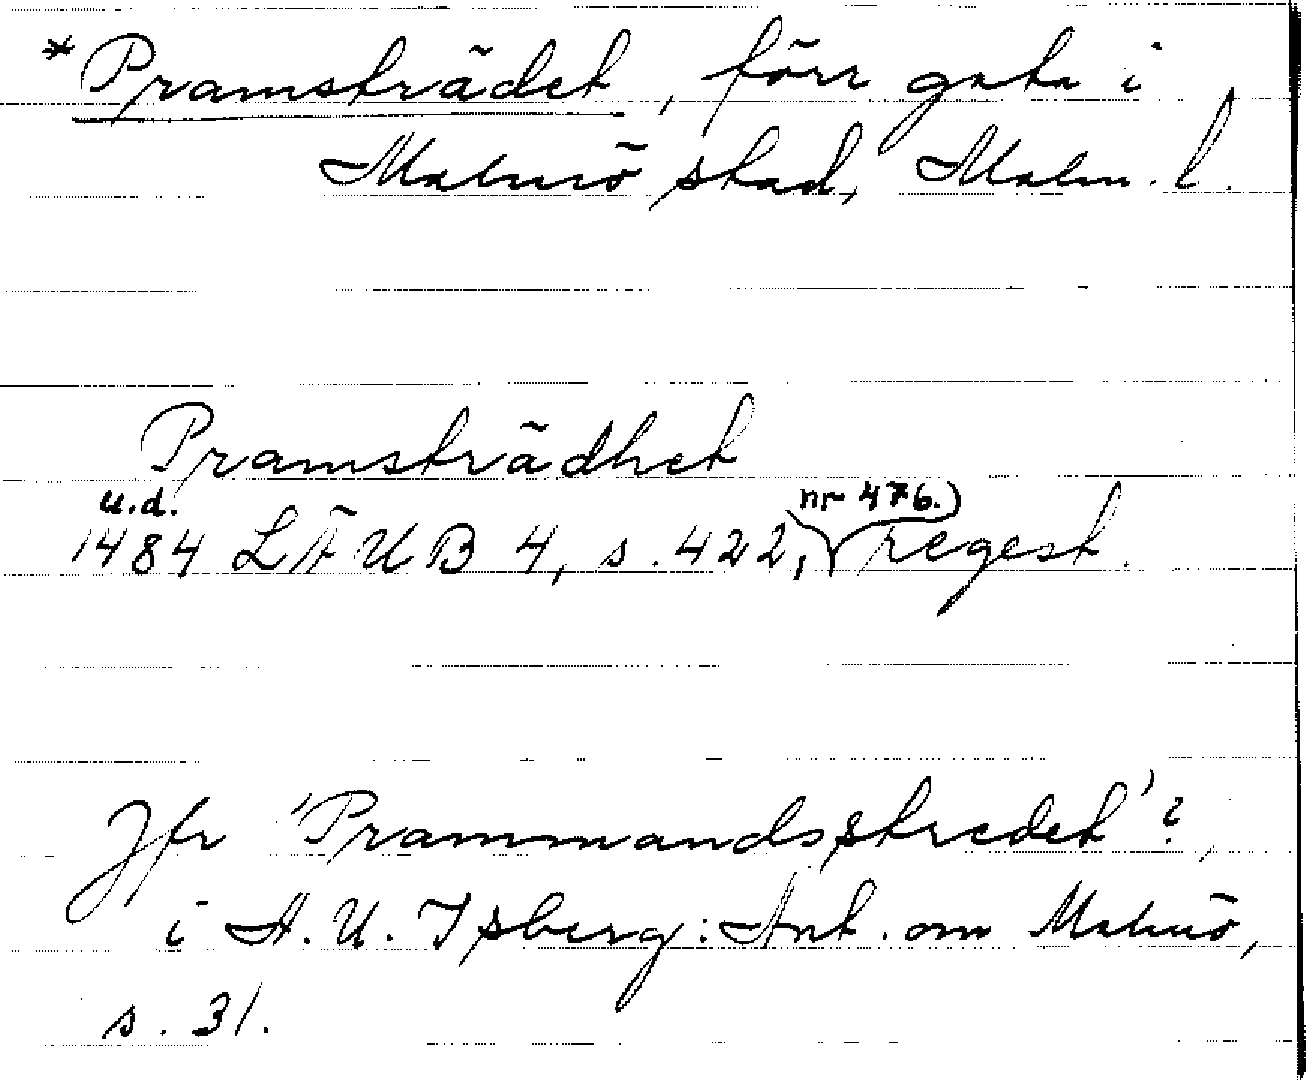 *Pramsträdet, förr gata i
Malmö stad, Malm. l.
Pramsträdhet
u.d.
1484 LÄUB 4, s. 422, nr 476.) regest.
Jfr 'Prammandsstredet'?,
i A. U. Isberg: Ant. om Malmö,
s. 31.